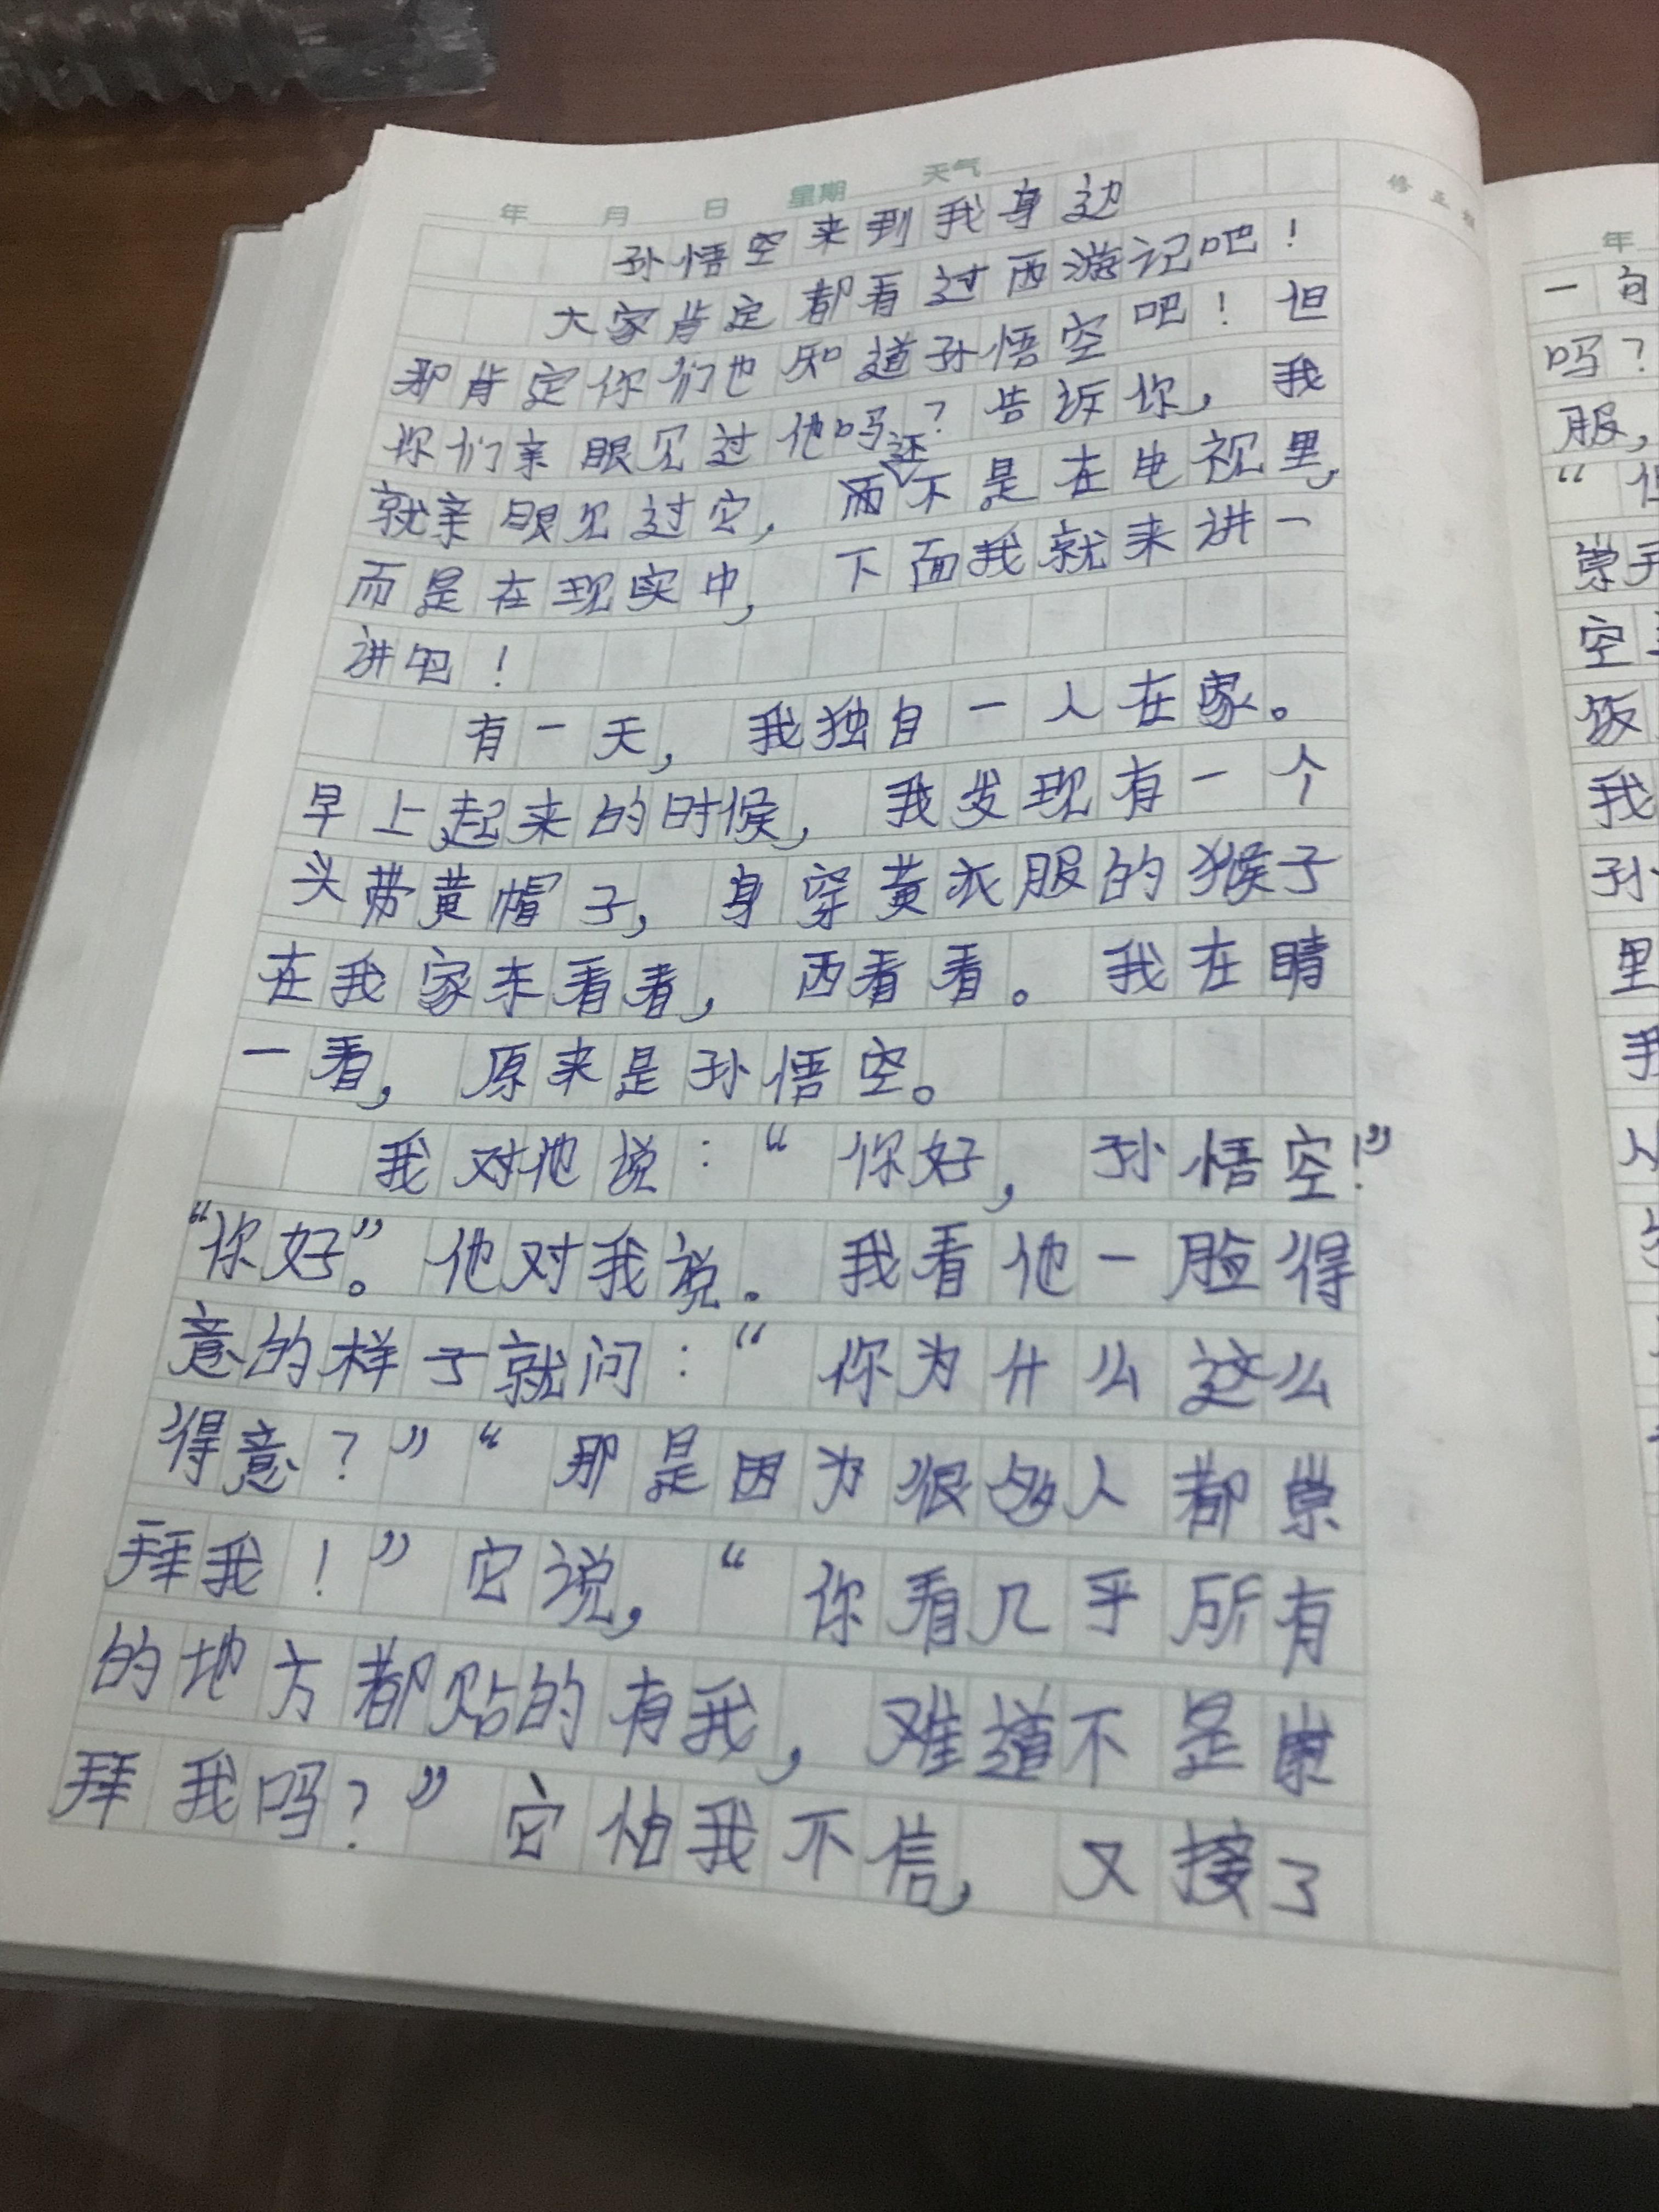 年 月 日 星期 天气
修正栏
孙悟空来到我身边
大家肯定都看过西游记吧！
那肯定你们也知道孙悟空吧！但
你们亲眼见过他吗？告诉你，我
就亲眼见过它，而还不是在电视里，
而是在现实中，下面我就来讲一
讲吧！
有一天，我独自一人在家。
早上起来的时候，我发现有一个
头带黄帽子，身穿黄衣服的猴子
在我家东看看，西看看。我在睛
一看，原来是孙悟空。
我对他说：“你好，孙悟空！”
“你好”。他对我说。我看他一脸得
意的样子就问：“你为什么这么
得意？”“那是因为很多人都崇
拜我！”它说，“你看几乎所有
的地方都贴的有我，难道不是崇
拜我吗？”它怕我不信，又接了
年
一句
吗？
服，
“但
崇拜
空
饭
我
孙
里
我